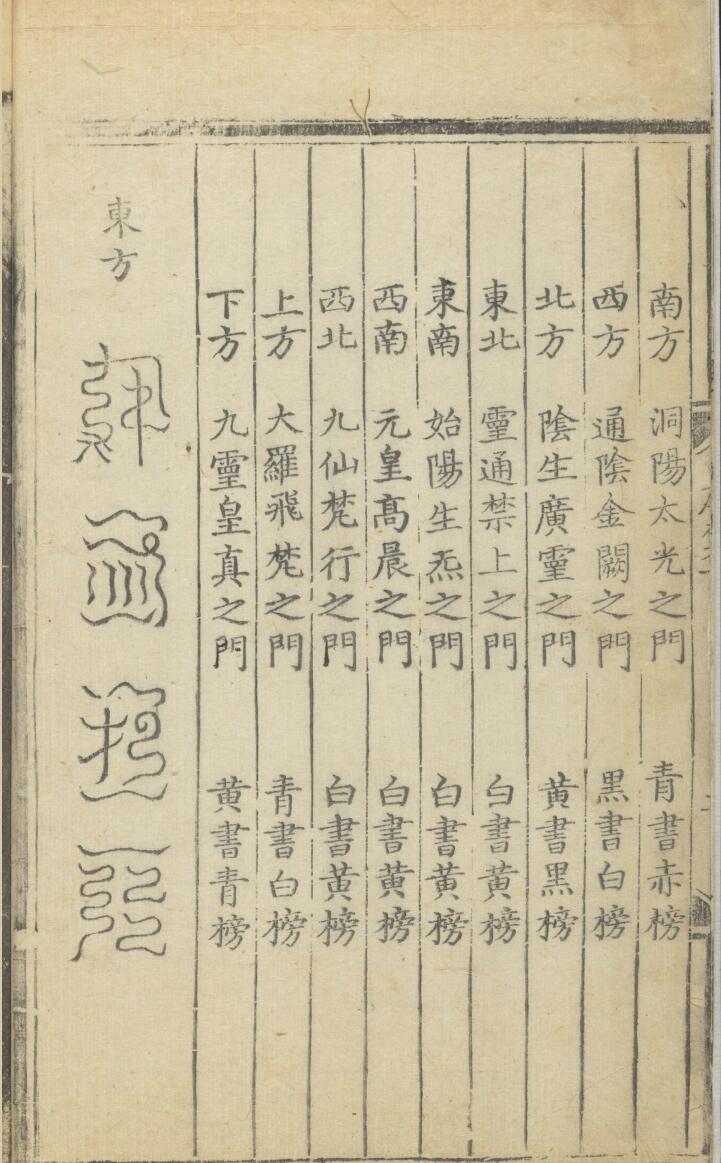 南方 洞陽太光之門 青書赤榜
西方 通陰金闕之門 黑書白榜
北方 陰生廣靈之門 黃書黑榜
東北 靈通禁上之門 白書黃榜
東南 始陽生炁之門 白書黃榜
西南 元皇高晨之門 白書黃榜
西北 九仙梵行之門 白書黃榜
上方 大羅飛梵之門 青書白榜
下方 九靈皇真之門 黃書青榜
東方